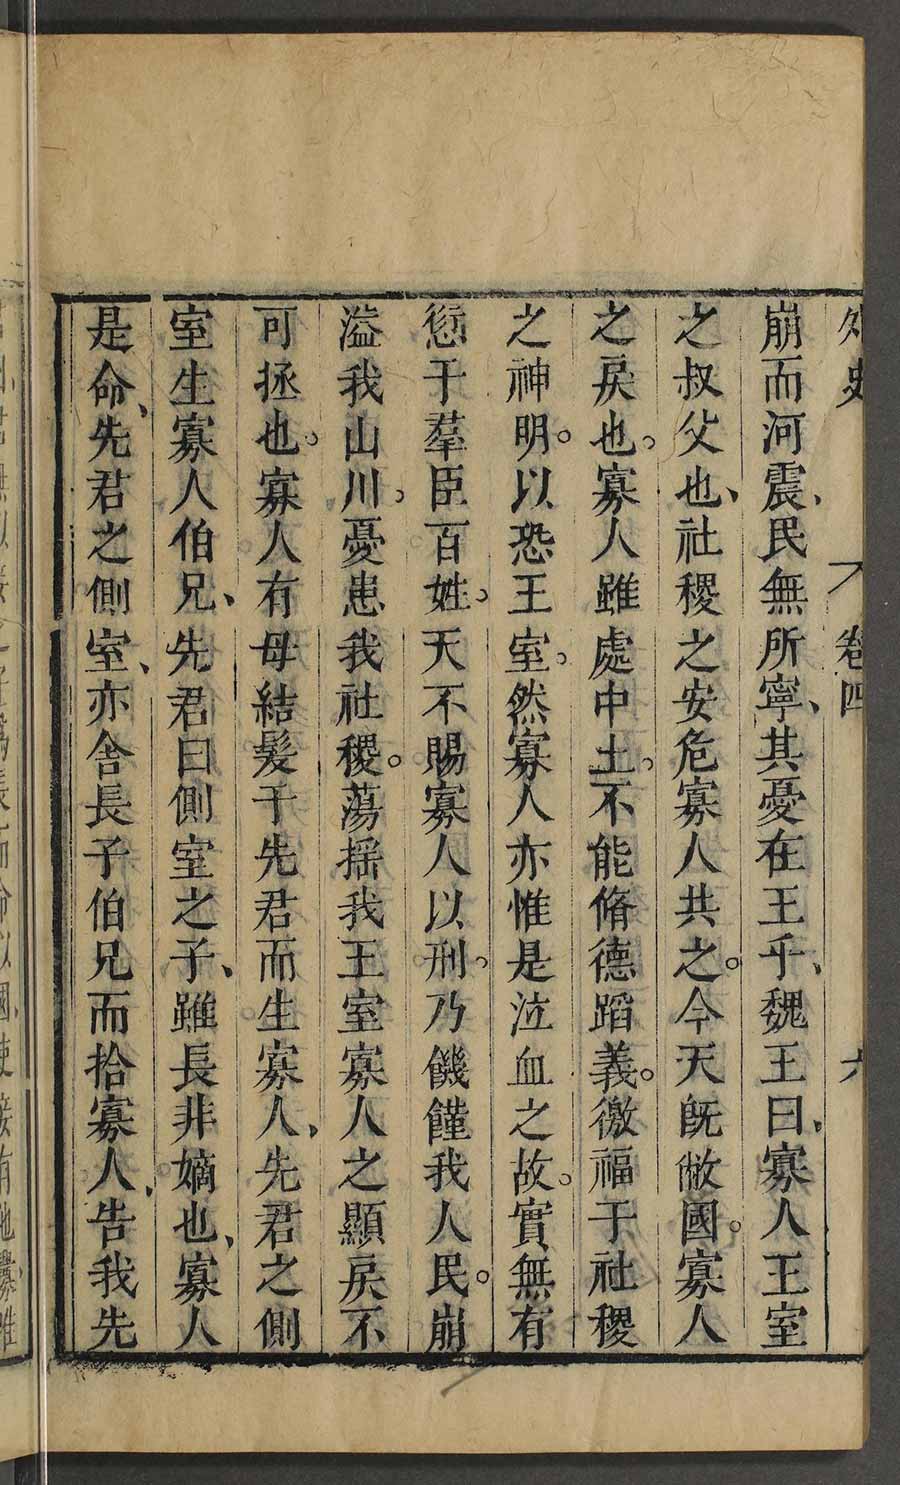 卷四
崩而河震、民無所寧、其憂在王乎、魏王曰、寡人王室
之叔父也、社稷之安危寡人共之。今天旣敝國。寡人
之戾也。寡人雖處中土。不能脩德蹈義。徼福于社稷
之神明。以恐王室。然寡人亦惟是泣血之故。實無有
愆于羣臣百姓。天不賜寡人以刑。乃饑饉我人民。崩
溢我山川。憂患我社稷。蕩揺我王室寡人之顯戾不
可拯也。寡人有母結髮于先君而生寡人、先君之側
室生寡人伯兄、先君曰側室之子、雖長非嫡也、寡人
是命、先君之側室、亦舍長子伯兄而拾寡人、告我先